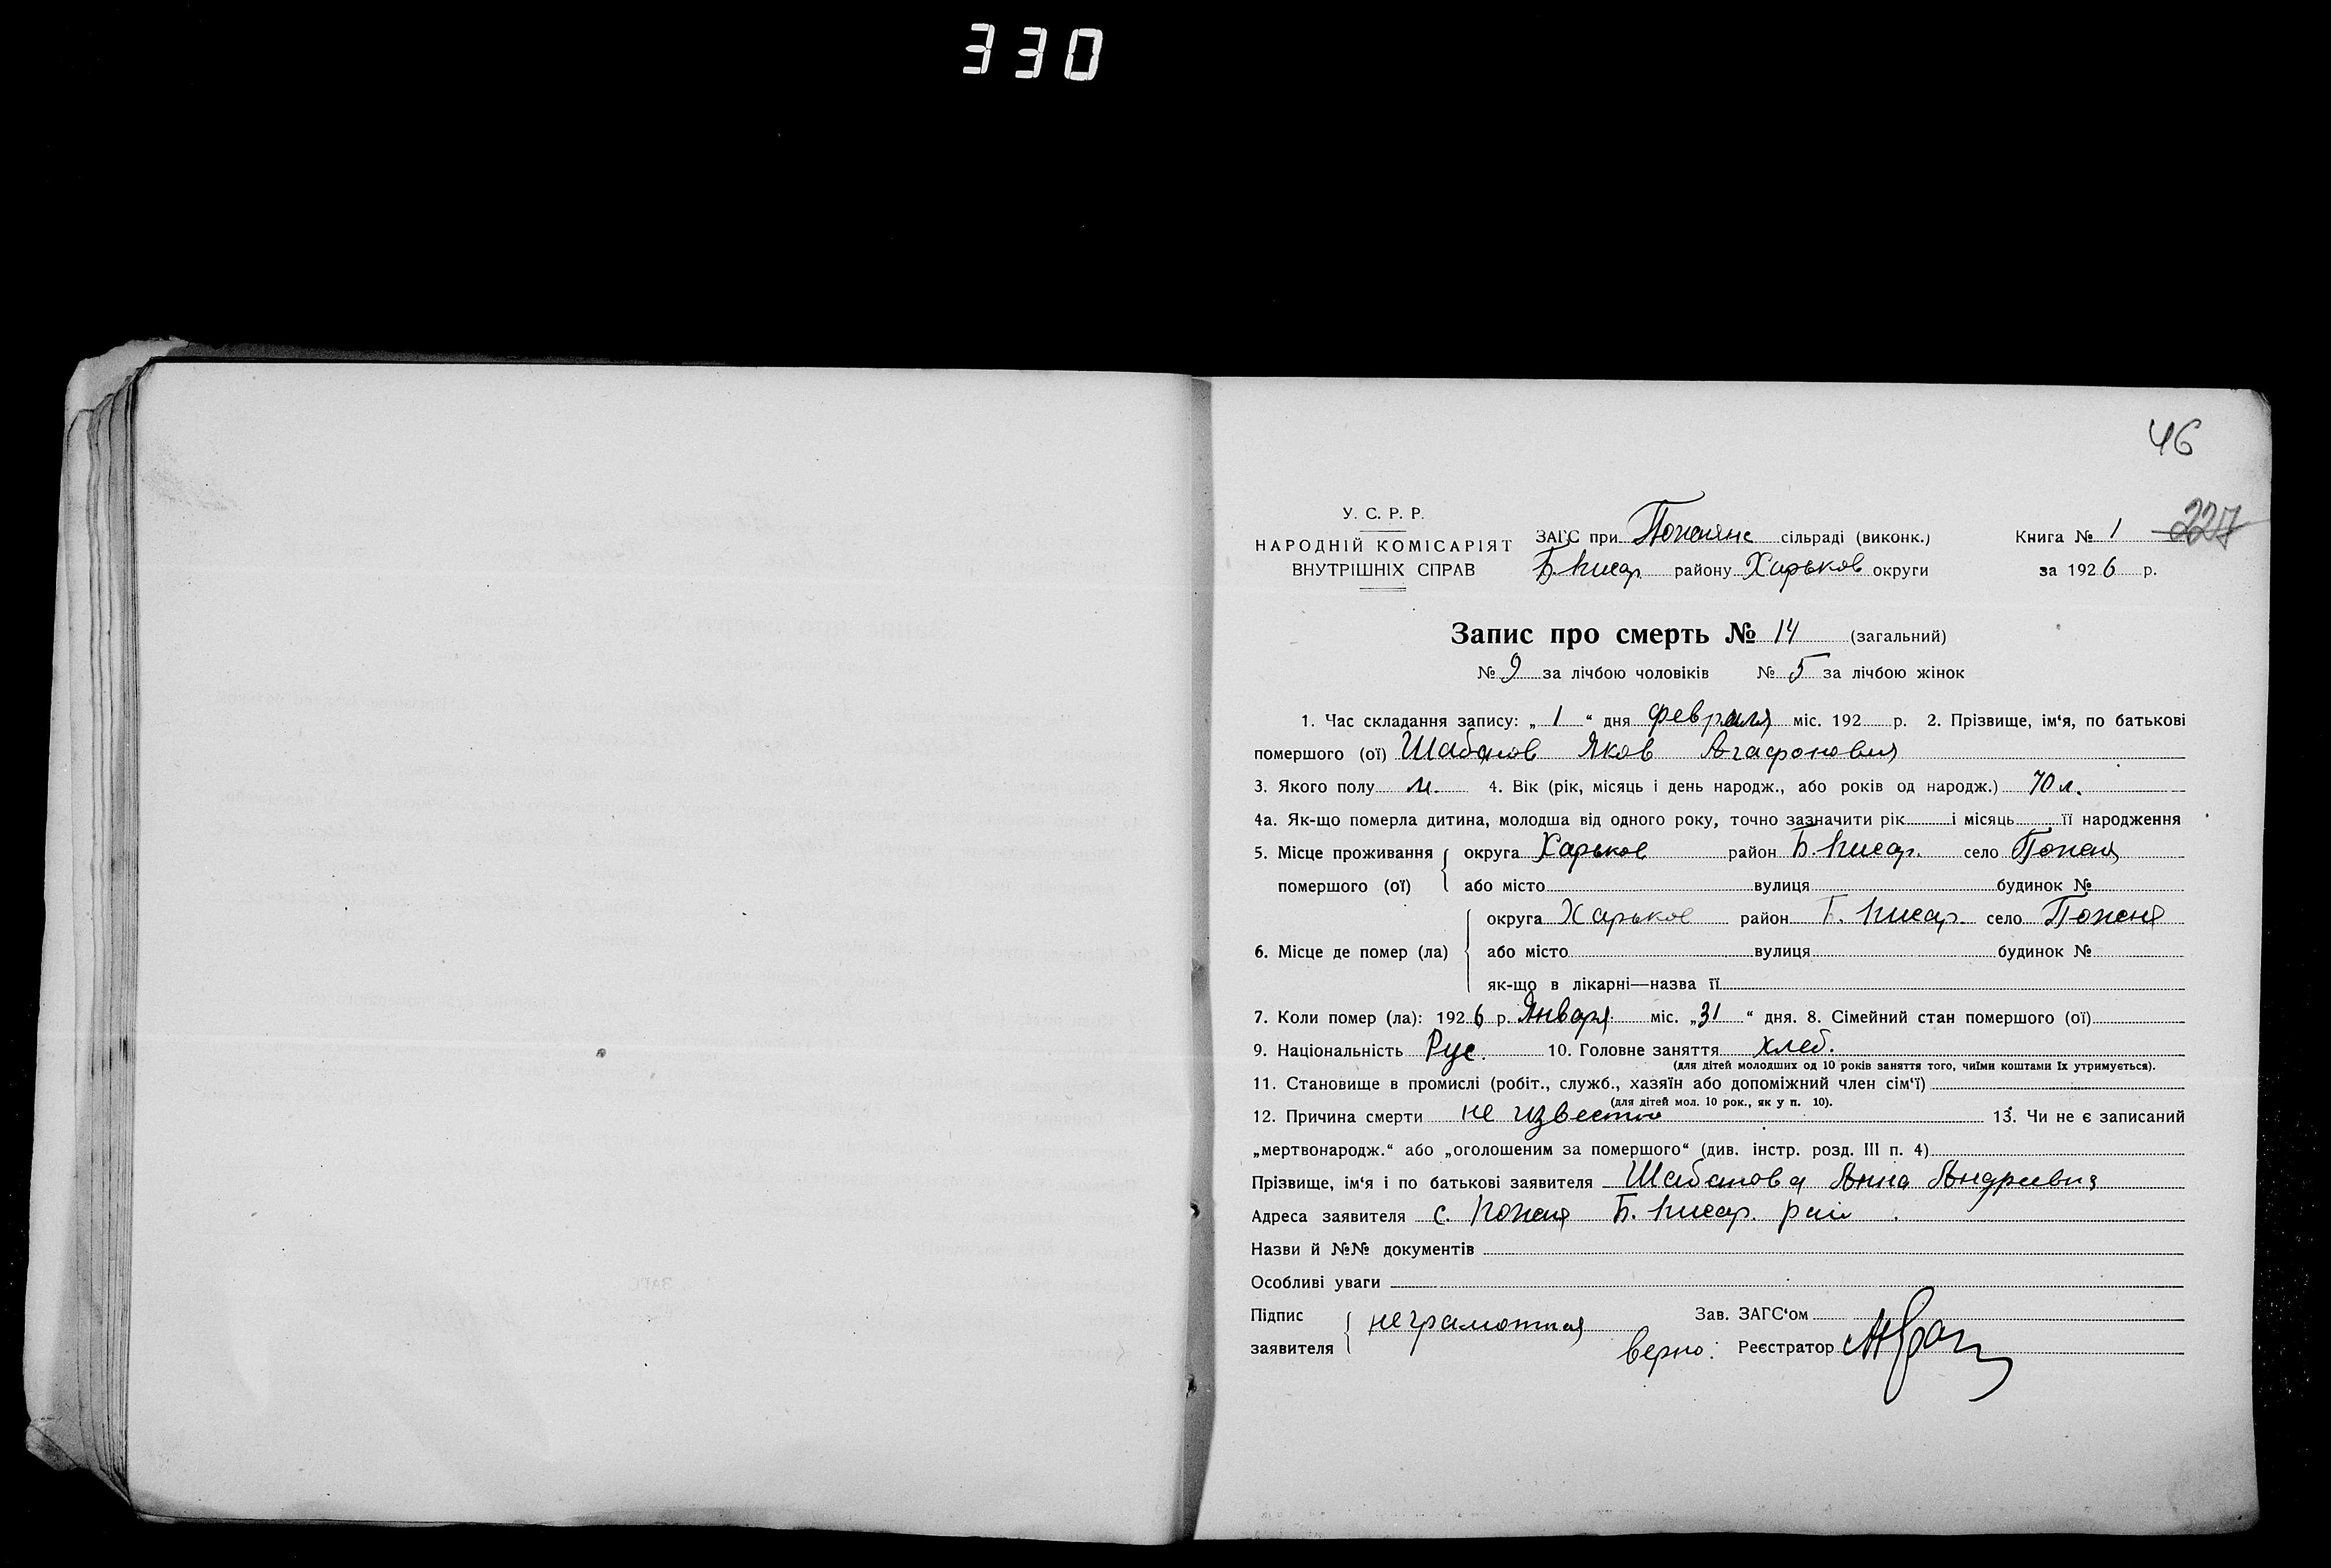 330
46
У. С. Р. Р.
НАРОДНІЙ КОМІСАРІЯТ
ВНУТРІШНІХ СПРАВ
ЗАГС при Поженянс сільраді (виконк.)
Б. Писар. району Харьков округи
Книга № 1 227
за 1926 р.
Запис про смерть № 14 (загальний)
№ 9 за лічбою чоловіків № 5 за лічбою жінок
1. Час складання запису: „ 1 “ дня февраля міс. 192 р. 2. Прізвище, ім‘я, по батькові
помершого (ої) Шабанов Яков Агафонович
3. Якого полу м. 4. Вік (рік, місяць і день народж., або років од народж.) 70 л.
4а. Як-що померла дитина, молодша від одного року, точно зазначити рік і місяць її народження
5. Місце проживання округа Харьков район Б. Писар. село Поженя
помершого (ої) або місто вулиця будинок №
округа Харьков район Б. Писар. село Поженя
6. Місце де помер (ла) або місто вулиця будинок №
як-що в лікарні—назва її
7. Коли помер (ла): 1926 р. Января міс. „31 “ дня. 8. Сімейний стан помершого (ої)
9. Національність Рус. 10. Головне заняття хлеб.
(для дітей молодших од 10 років заняття того, чиїми коштами їх утримується).
11. Становище в промислі (робіт., служб., хазяїн або допоміжний член сім‘ї)
(для дітей мол. 10 рок., як у п. 10).
12. Причина смерти не известно 13. Чи не є записаний
„мертвонародж.“ або „оголошеним за помершого“ (див. інстр. розд. III п. 4)
Прізвище, ім‘я і по батькові заявителя Шабанова Анна Андреевна
Адреса заявителя с. Поженя Б. Писар. рай.
Назви й №№ документів
Особливі уваги
Підпис
заявителя неграмотная
Зав. ЗАГС‘ом
верно: Реєстратор